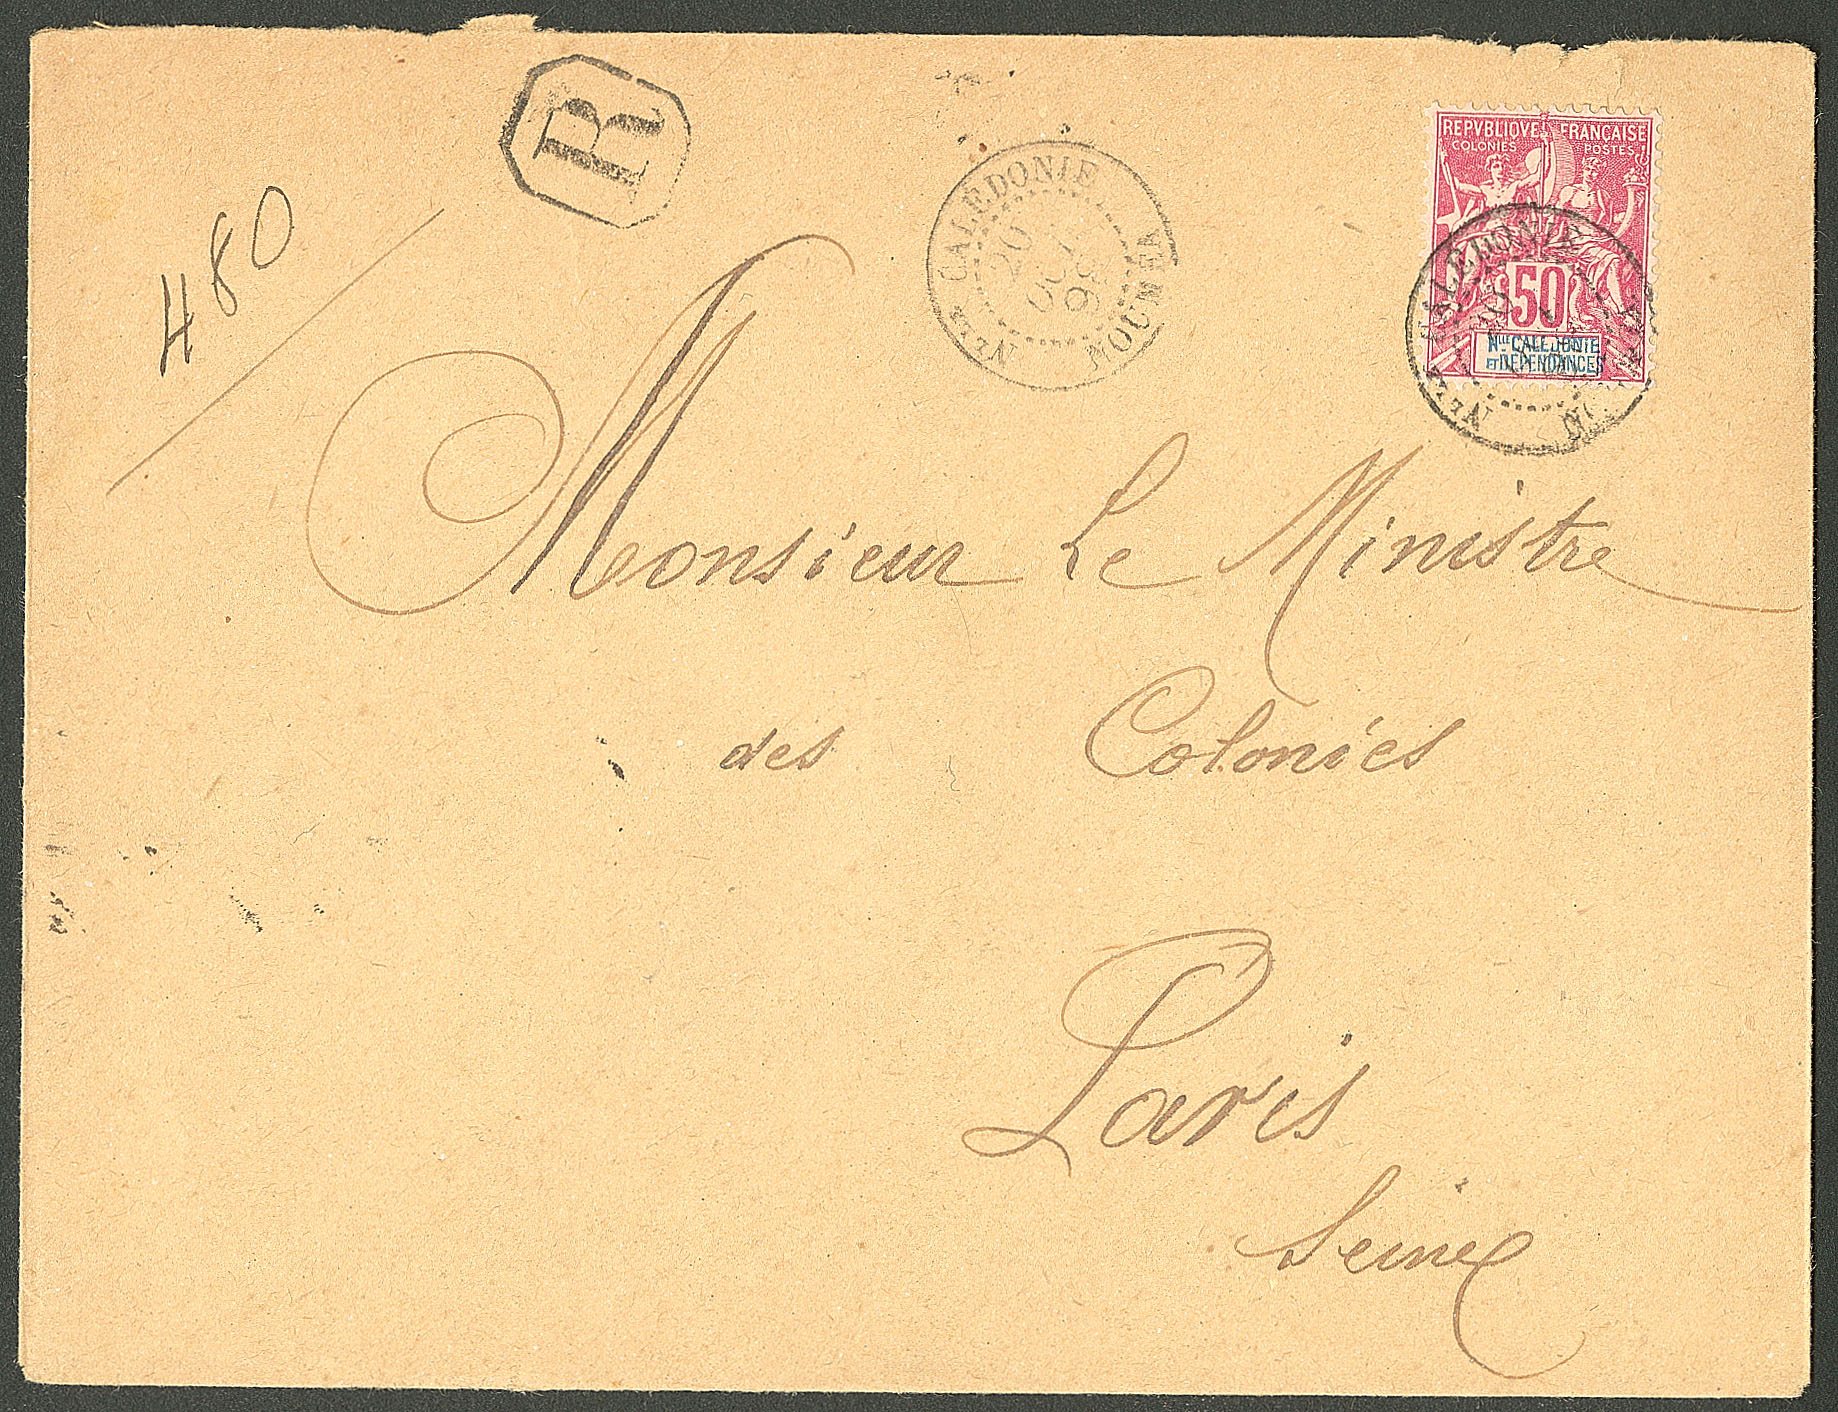 R
480
Nᴸᴸᴱ CALÉDONIE
20
OCT
96
NOUMEA
REPVBLIQVE FRANÇAISE
COLONIES POSTES
50
Nˡˡᵉ CALEDONIE
ET DÉPENDANCES
Monsieur Le Ministre
des Colonies
Paris
Seine